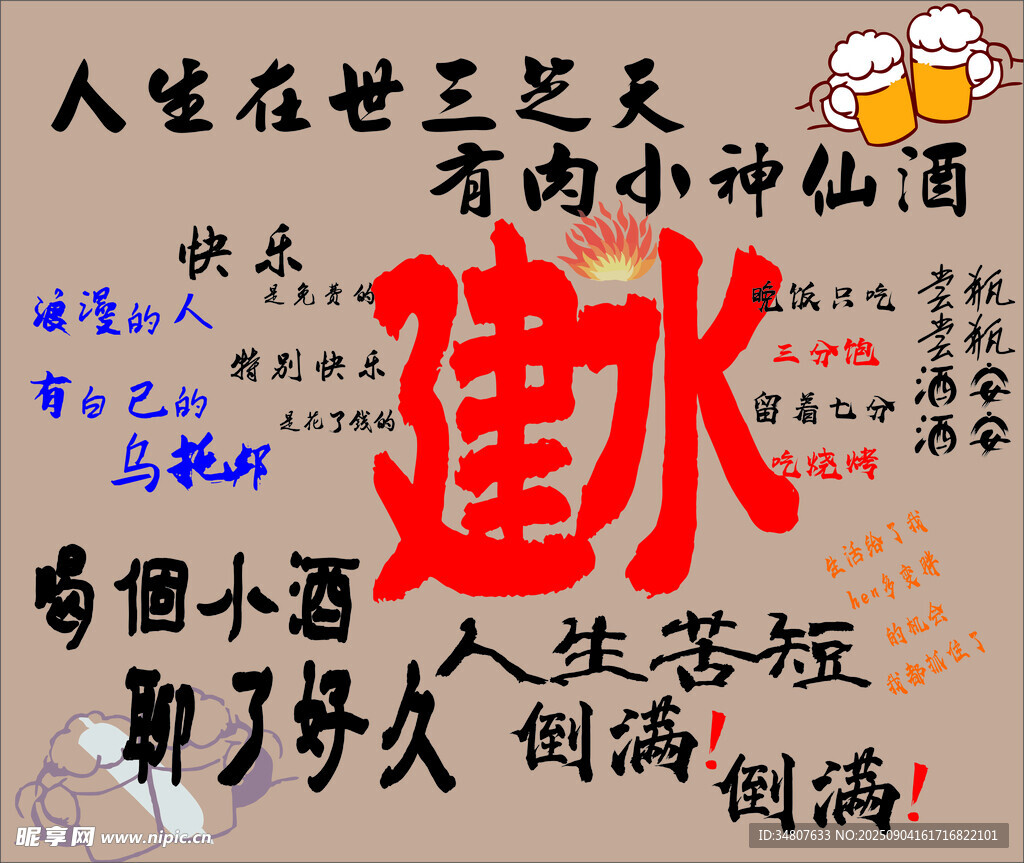 人生在世三芝天
有肉小神仙酒
快乐
是免费的
浪漫的人
特别快乐
有自己的
是花了钱的
乌托邦
建水
晚饭只吃
三分饱
留着七分
吃烧烤
尝瓶
尝瓶
酒安
酒安
生活给了我
hen多变胖
的机会
我都抓住了
喝個小酒
聊了好久
人生苦短
倒满!
倒满!
昵享网 www.nipic.cn
ID:34807633 NO:20250904161716822101